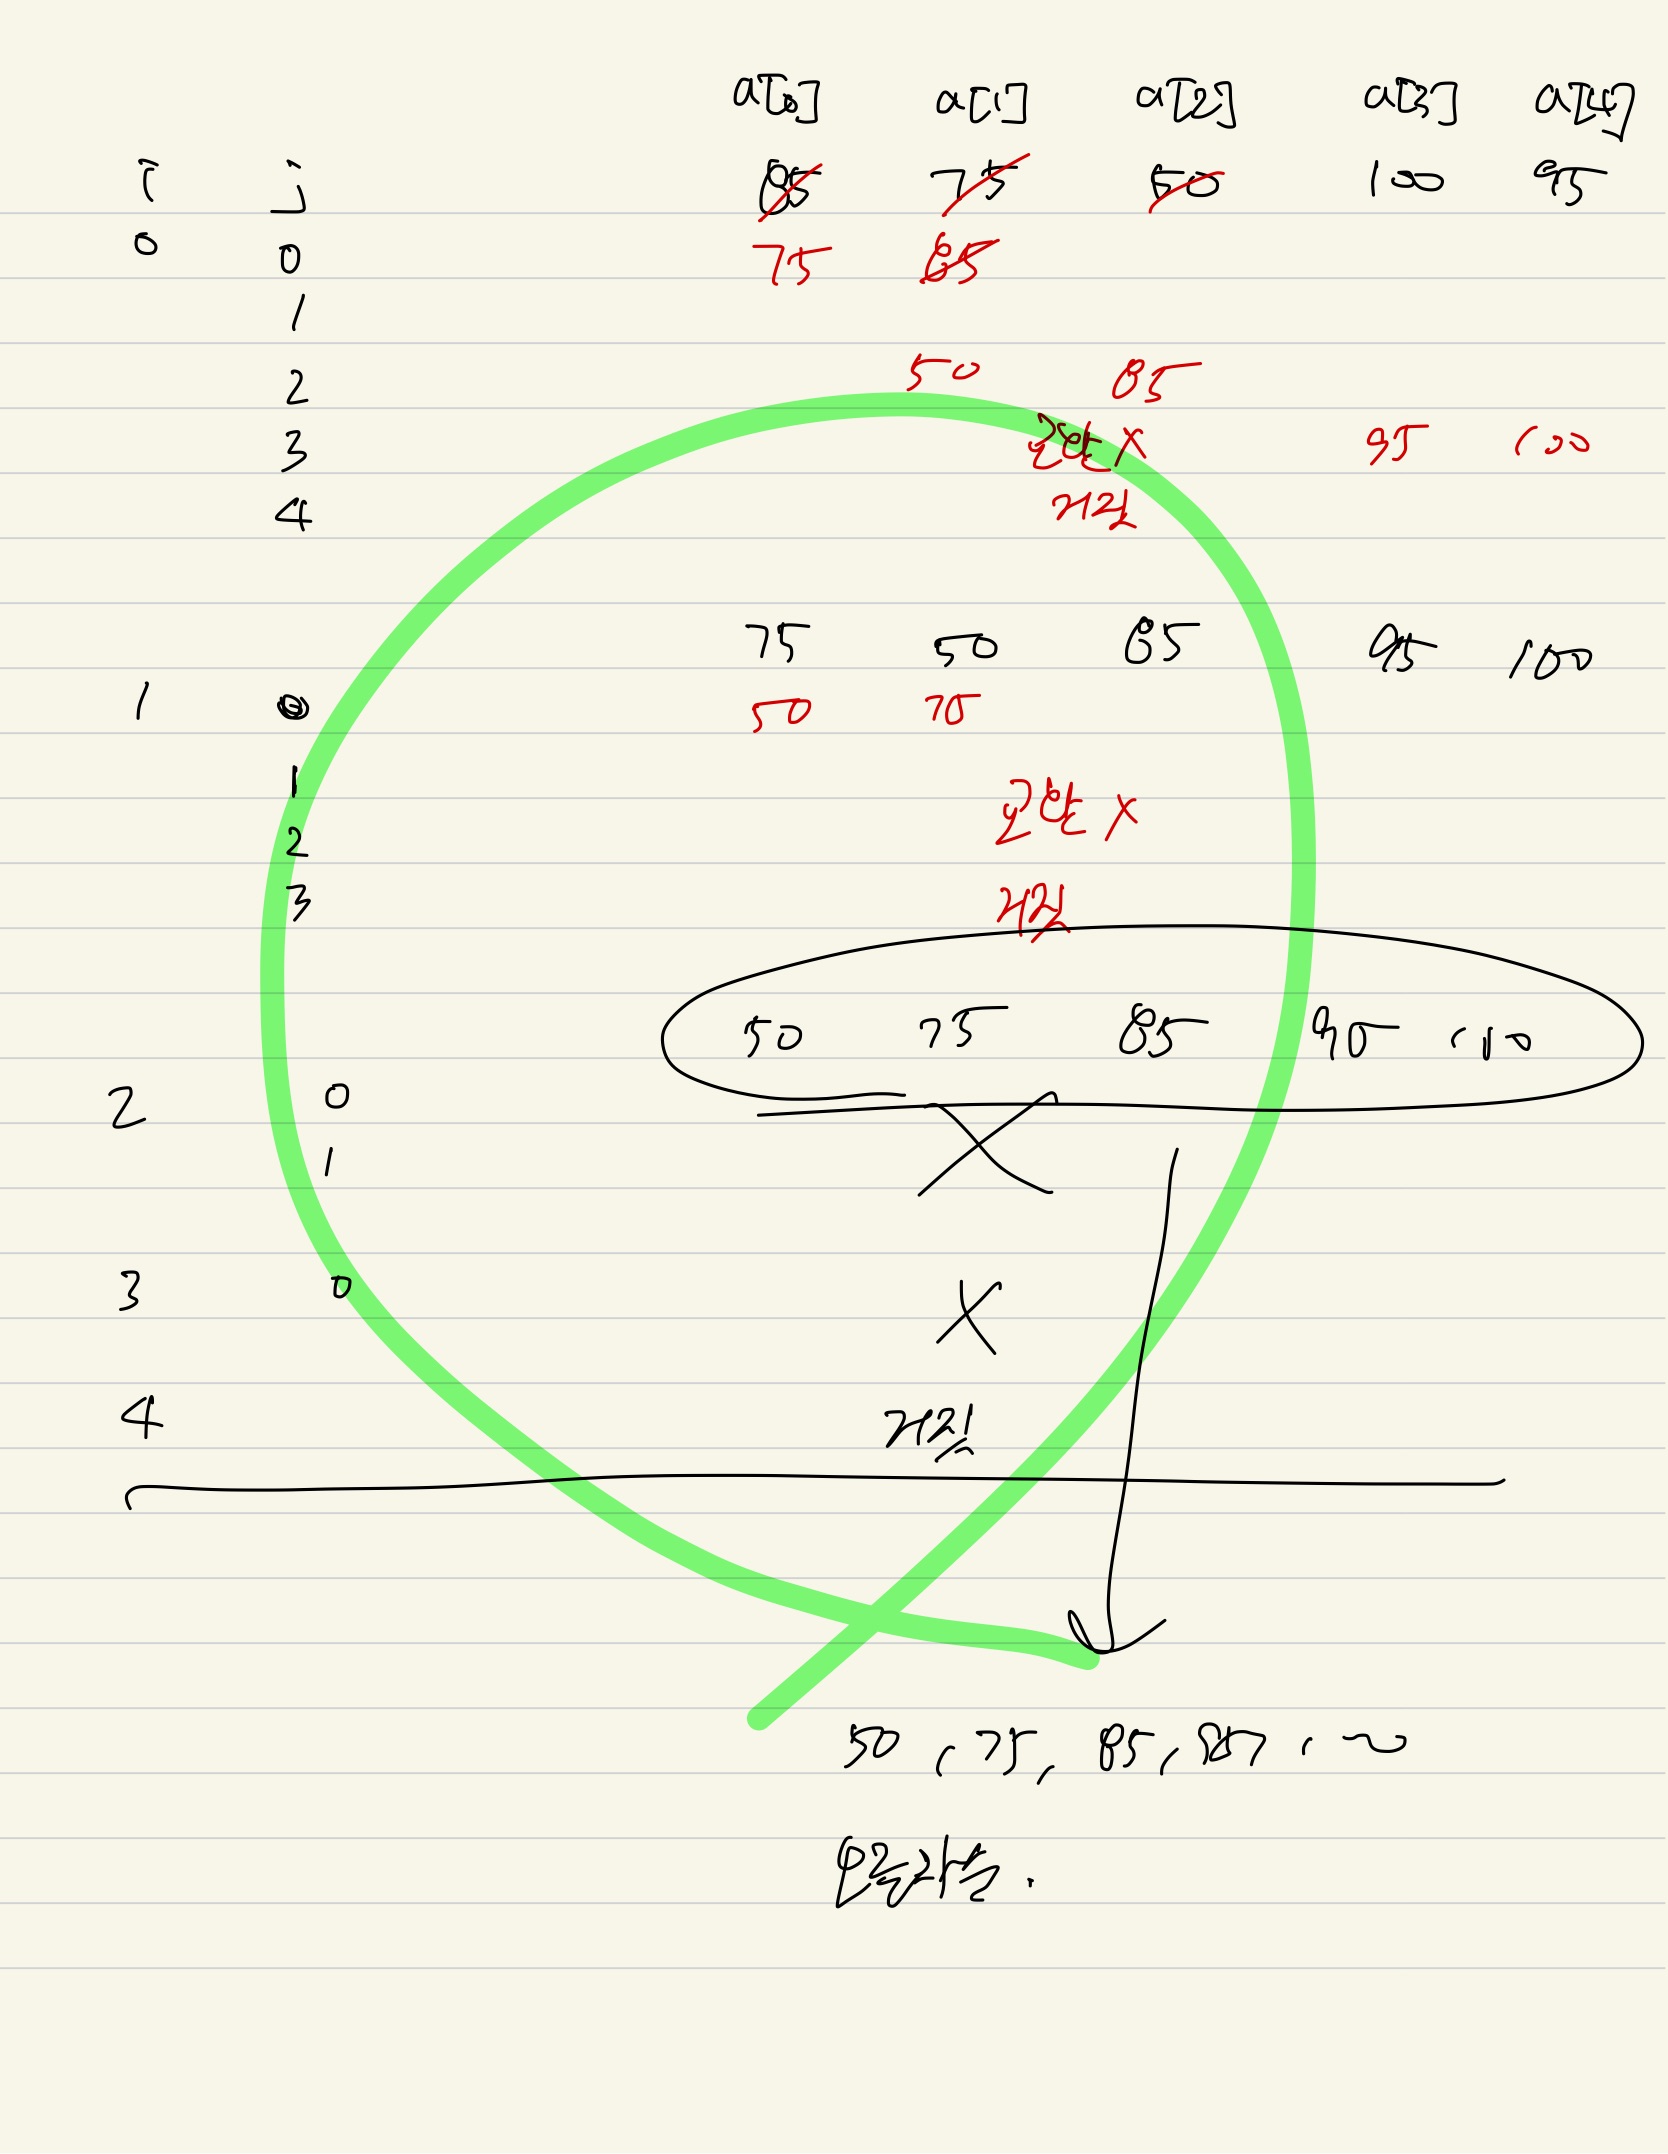 a[0] a[1] a[2] a[3] a[4]
i j 85 75 50 100 95
0 0 75 85
1
2 50 85
3 X 95 100
4
75 50 85 95 100
1 0 50 75
1 X
2
3
50 75 85 95 100
2 0 X
1
3 0 X
4
50, 75, 85,